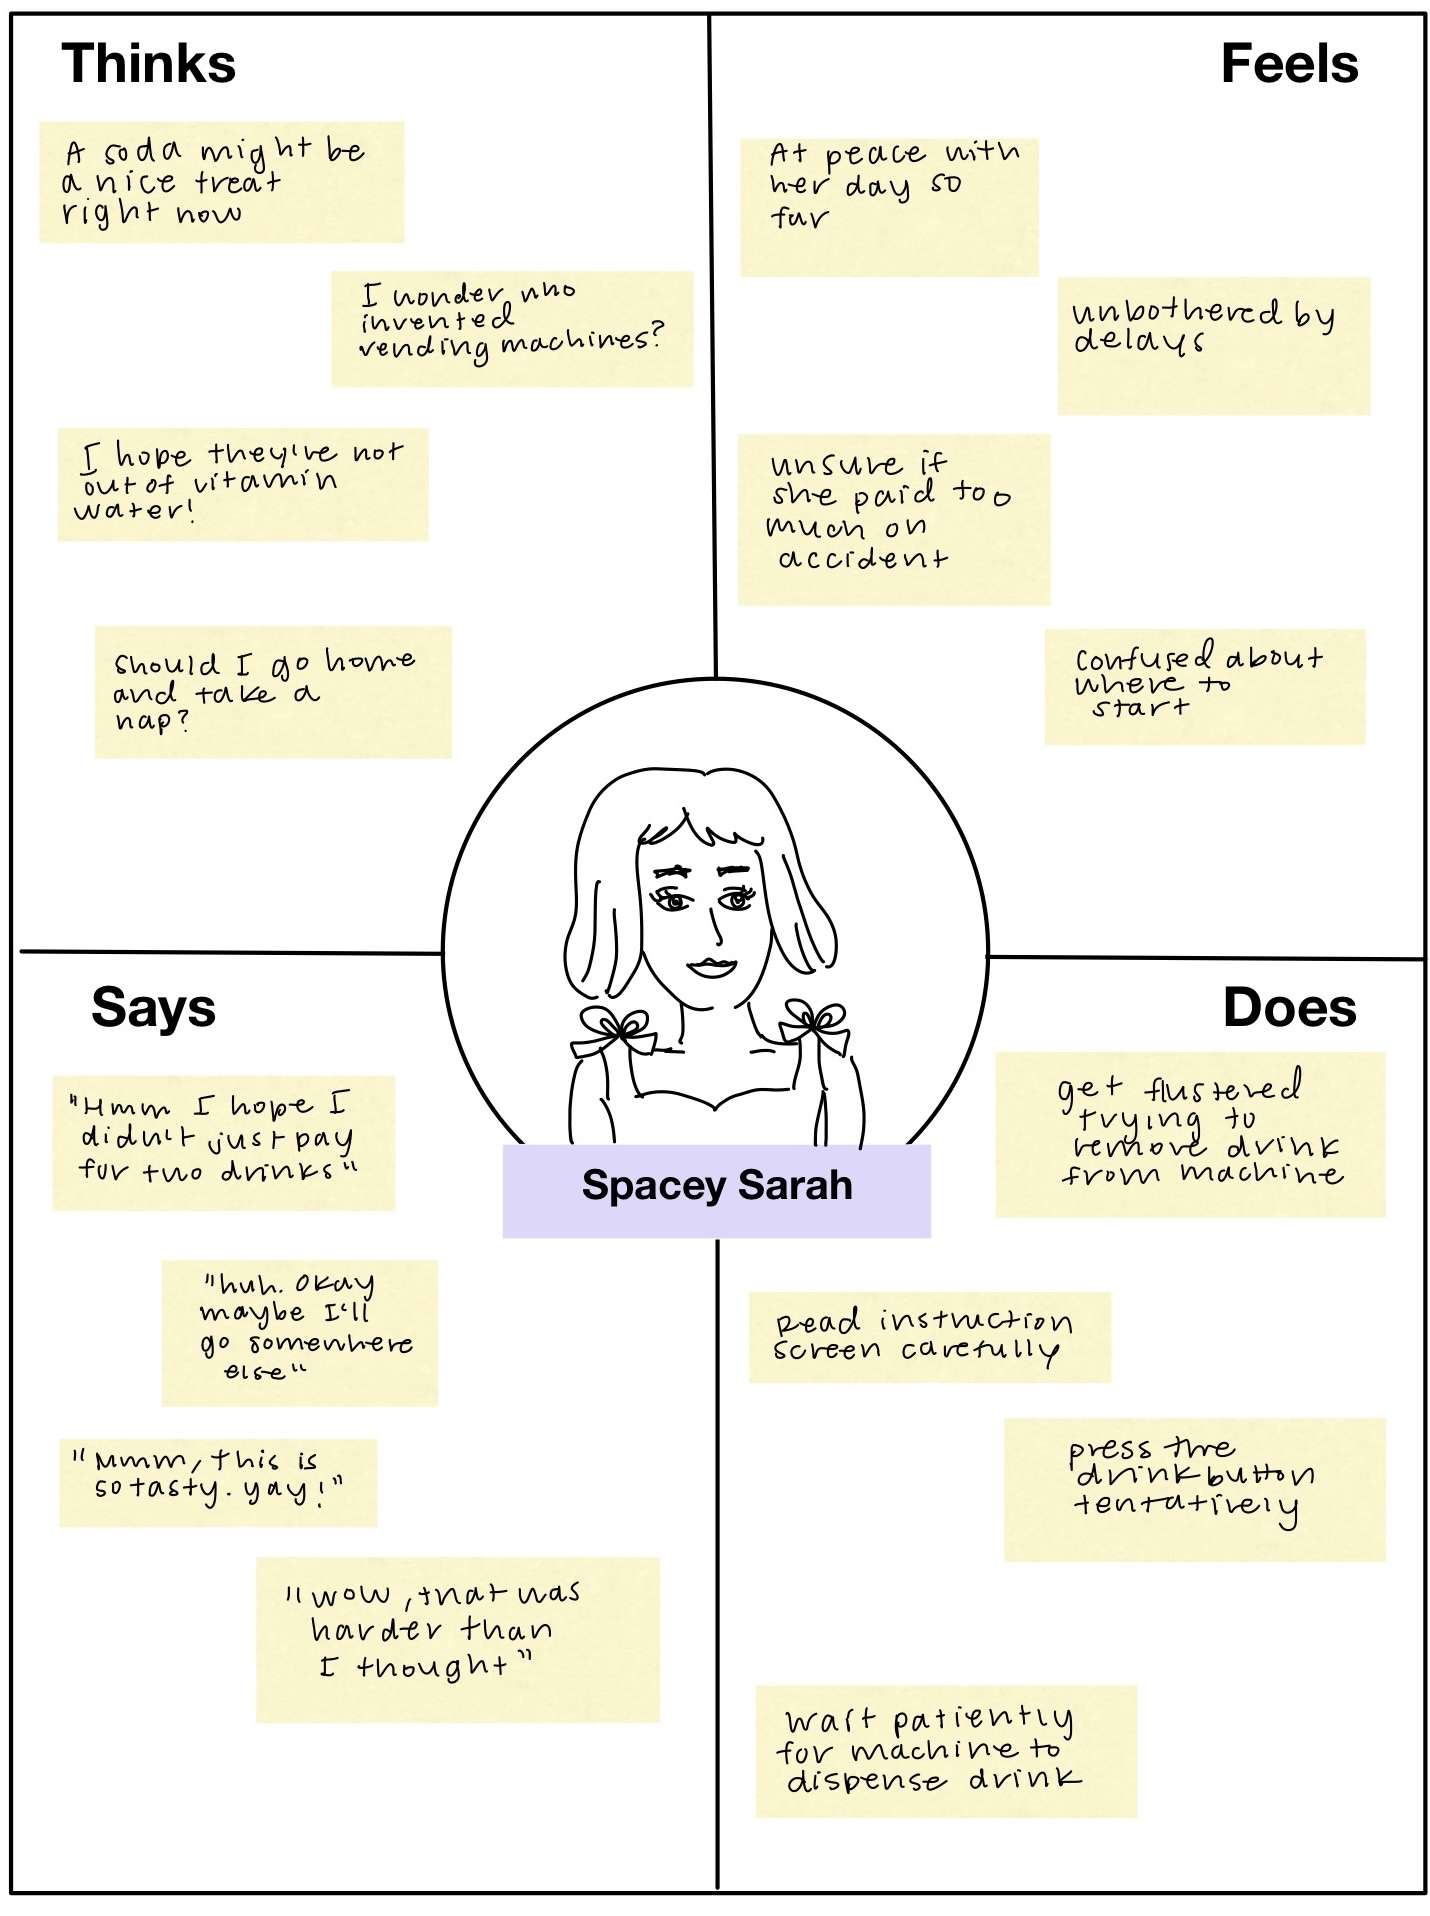 Thinks
A soda might be
a nice treat
right now
I wonder who
invented
vending machines?
I hope they're not
out of vitamin
water!
should I go home
and take a
nap?
Feels
At peace with
her day so
far
unbothered by
delays
unsure if
she paid too
much on
accident
confused about
where to
start
Spacey Sarah
Says
"Hmm I hope I
didn't just pay
for two drinks"
"huh. Okay
maybe I'll
go somewhere
else"
"Mmm, this is
so tasty. yay!"
"wow, that was
harder than
I thought"
Does
get flustered
trying to
remove drink
from machine
Read instruction
screen carefully
press the
drink button
tentatively
wait patiently
for machine to
dispense drink